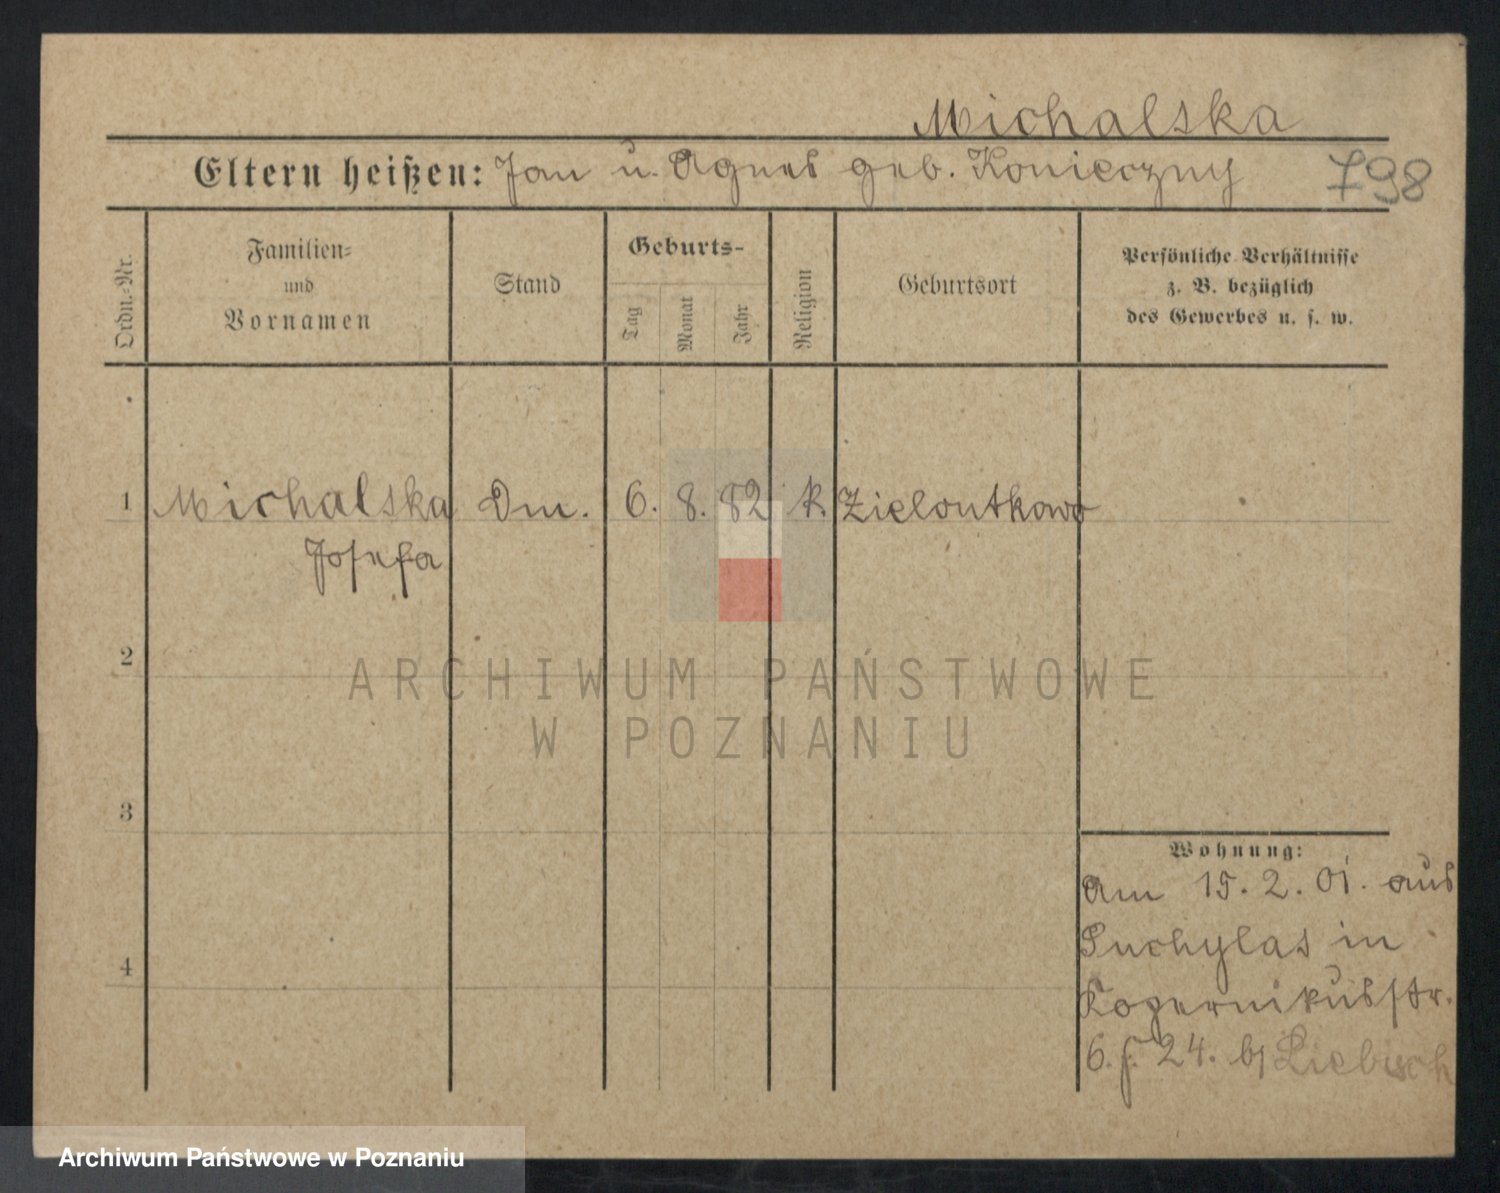 Michalska
Eltern heißen: Jan u. Agnes geb. Konieczny 798
Ordn.-Nr.
Familien-
und
Vornamen
Stand
Geburts-
Tag
Monat
Jahr
Religion
Geburtsort
Persönliche Verhältnisse
z. B. bezüglich
des Gewerbes u. s. w.
1 Michalska Dm. 6. 8. 82 k. Zielontkowo
Josefa
2
ARCHIWUM PAŃSTWOWE
W POZNANIU
3
Wohnung:
Am 15. 2. 01. aus
Suchylas in
4
Kopernikusstr.
6. f. 24. bj Liebisch
Archiwum Państwowe w Poznaniu